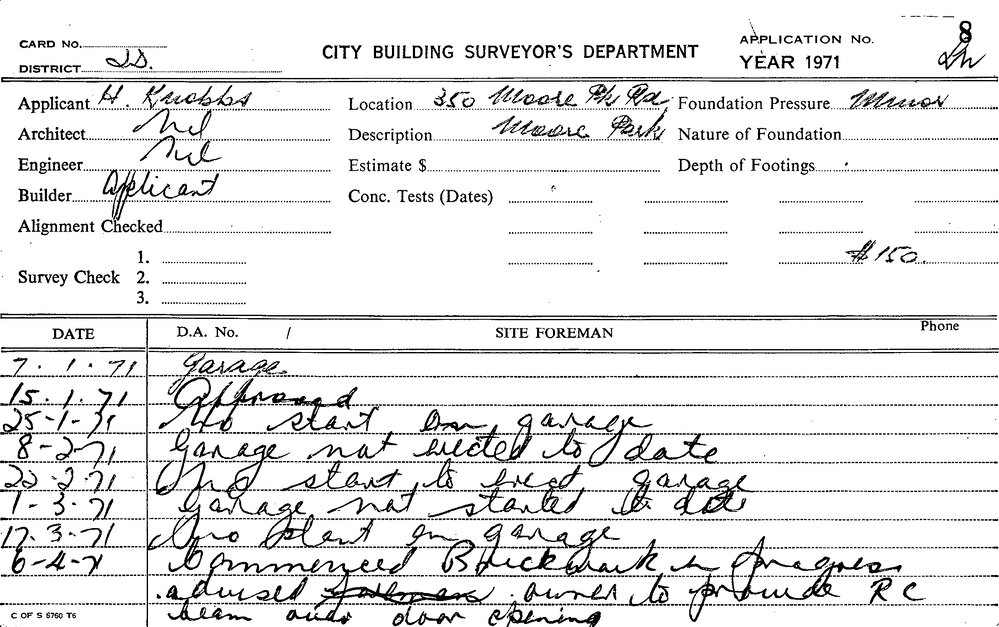 8
CARD No.
CITY BUILDING SURVEYOR'S DEPARTMENT
APPLICATION No.
DISTRICT
YEAR 1971
Applicant H. Knobbs Location 350 Moore Pk Rd, Foundation Pressure Minor
Architect Nil Description Moore Park Nature of Foundation
Engineer Nil Estimate $ Depth of Footings
Builder Applicant Conc. Tests (Dates)
Alignment Checked
$150.
1.
Survey Check 2.
3.
DATE D.A. No. / SITE FOREMAN Phone
7. 1. 71 Garage
15. 1. 71 Approved
25-1-71 No start on garage
8-2-71 Garage not erected to date
22-2-71 No start to erect garage
1-3-71 Garage not started to date
17.3.71 No start on garage
6-4-71 Commenced Brickwork in progress
advised owner to provide RC
C OF S 6760 T6 beam over door opening